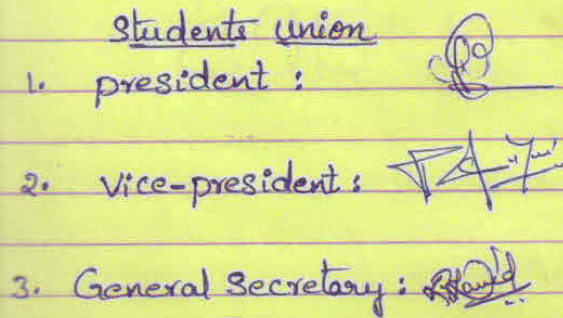 Students union
1. president :
2. Vice-president :
3. General Secretary :